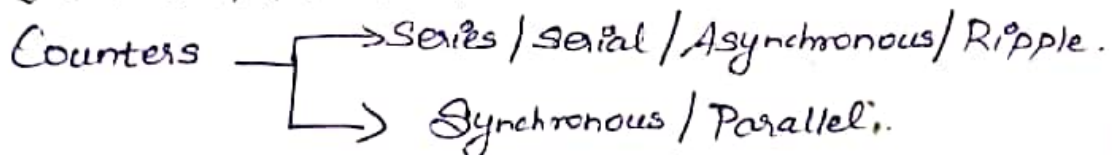 Counters → Series / Serial / Asynchronous / Ripple.
→ Synchronous / Parallel.